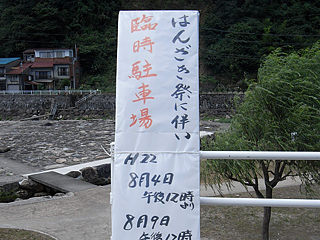 はんざき祭に伴い
臨時駐車場
H22
8月4日
午後12時より
8月9日
午後12時